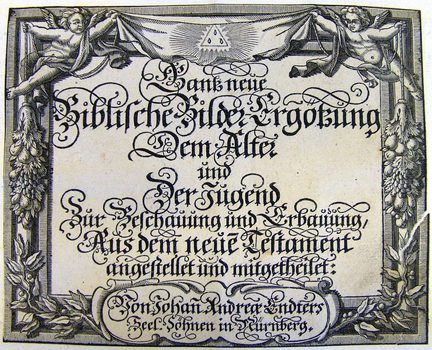 Gantz neue
Biblische Bilder-Ergötzung
Dem Alter
und
Der Jugend
Zur Beschauung und Erbauung,
Aus dem neuẽ Testament
angestellet und mitgetheilet:
Von Johañ Andreæ Endters
Seel. Söhnen in Nürnberg.